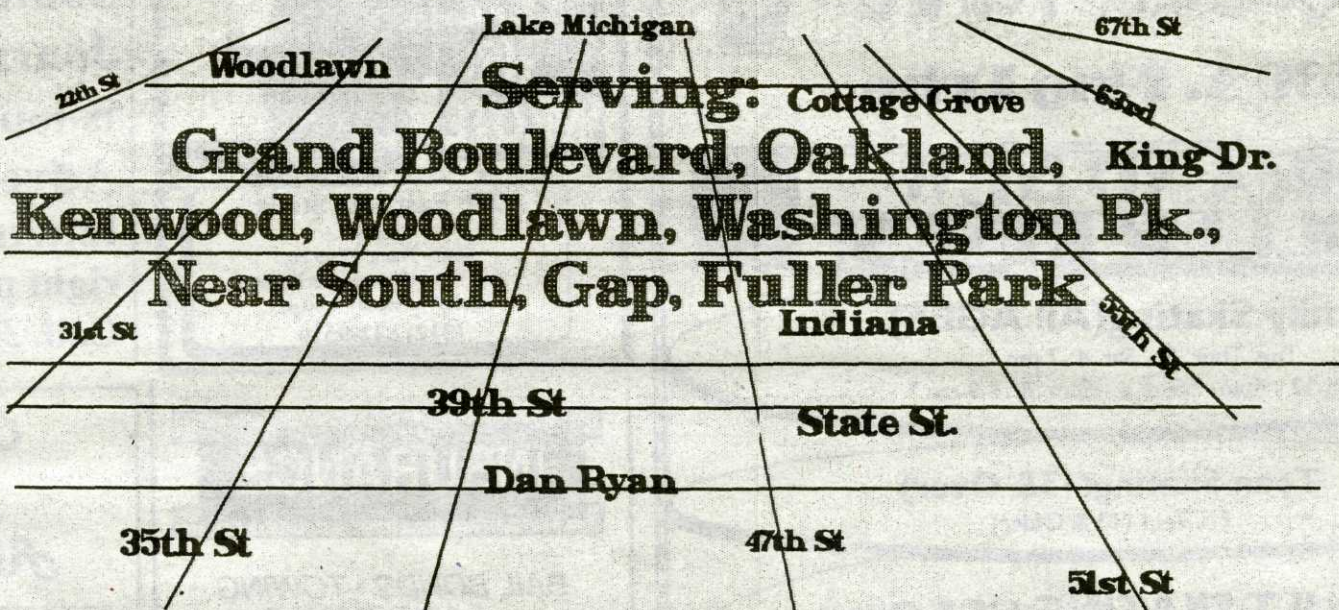 Lake Michigan
67th St
Woodlawn
22th St
Serving:
Cottage Grove
63rd
Grand Boulevard, Oakland,
King Dr.
Kenwood, Woodlawn, Washington Pk.,
Near South, Gap, Fuller Park
31st St
Indiana
55th St
39th St
State St.
Dan Ryan
35th St
47th St
51st St